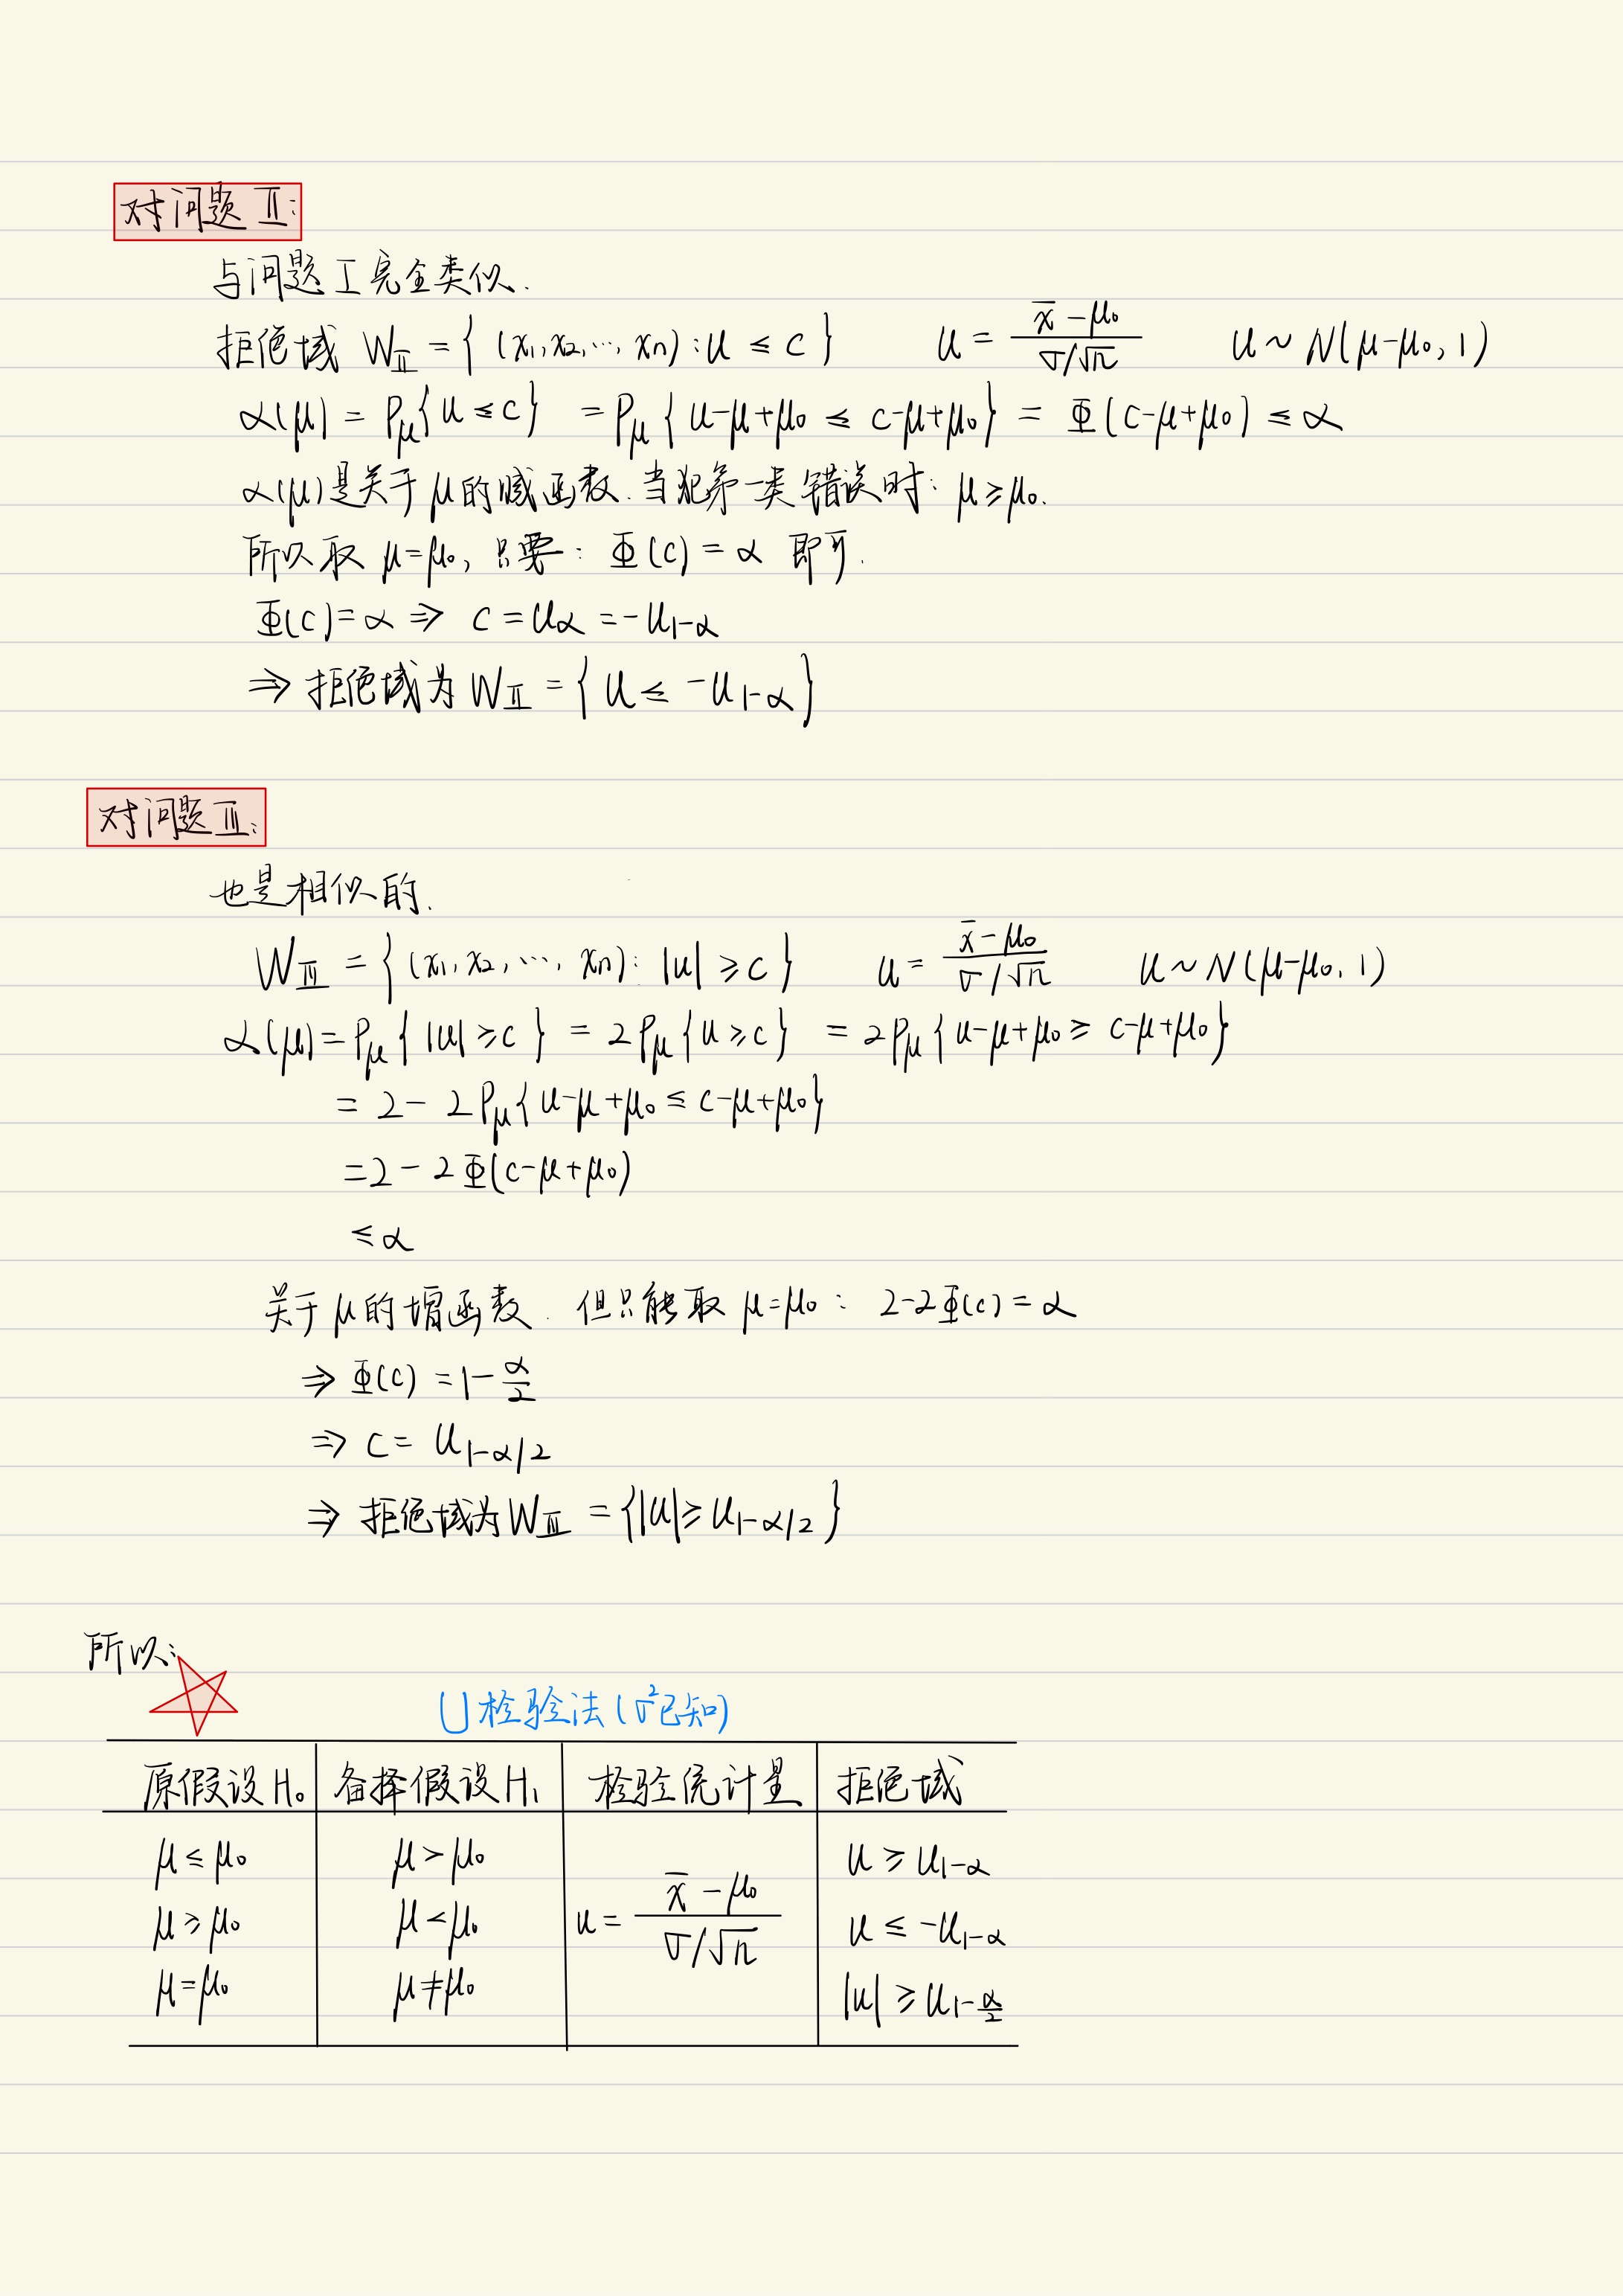 对问题 Ⅱ:
与问题Ⅰ完全类似.
拒绝域 W_Ⅱ = { (x₁,x₂,…, xn) : u ≤ c }  u = (x̄ - μ₀)/(σ/√n)  u ~ N(μ-μ₀, 1)
α(μ) = P_μ{u ≤ c} = P_μ{ u-μ+μ₀ ≤ c-μ+μ₀} = Φ(c-μ+μ₀) ≤ α
α(μ)是关于 μ 的减函数. 当犯第一类错误时: μ ≥ μ₀.
所以取 μ=μ₀, 只要: Φ(c) = α 即可.
Φ(c)=α ⇒ c = u_α = -u_{1-α}
⇒ 拒绝域为 W_Ⅱ = { u ≤ -u_{1-α}}
对问题Ⅲ:
也是相似的.
W_Ⅲ = { (x₁, x₂, …, xn): |u| ≥ c }  u = (x̄ - μ₀)/(σ/√n)  u ~ N(μ-μ₀, 1)
α(μ) = P_μ{ |u| ≥ c } = 2P_μ{u ≥ c} = 2P_μ{u-μ+μ₀ ≥ c-μ+μ₀}
= 2 - 2P_μ{u-μ+μ₀ ≤ c-μ+μ₀}
= 2 - 2Φ(c-μ+μ₀)
≤ α
关于 μ 的增函数. 但只能取 μ=μ₀ : 2-2Φ(c) = α
⇒ Φ(c) = 1-α/2
⇒ c = u_{1-α/2}
⇒ 拒绝域为W_Ⅲ = {|u| ≥ u_{1-α/2}}
所以:
U检验法(σ²已知)
原假设H₀ 备择假设H₁ 检验统计量 拒绝域
μ ≤ μ₀ μ > μ₀ u ≥ u_{1-α}
u = (x̄ - μ₀)/(σ/√n)
μ ≥ μ₀ μ < μ₀ u ≤ -u_{1-α}
μ = μ₀ μ ≠ μ₀ |u| ≥ u_{1-α/2}